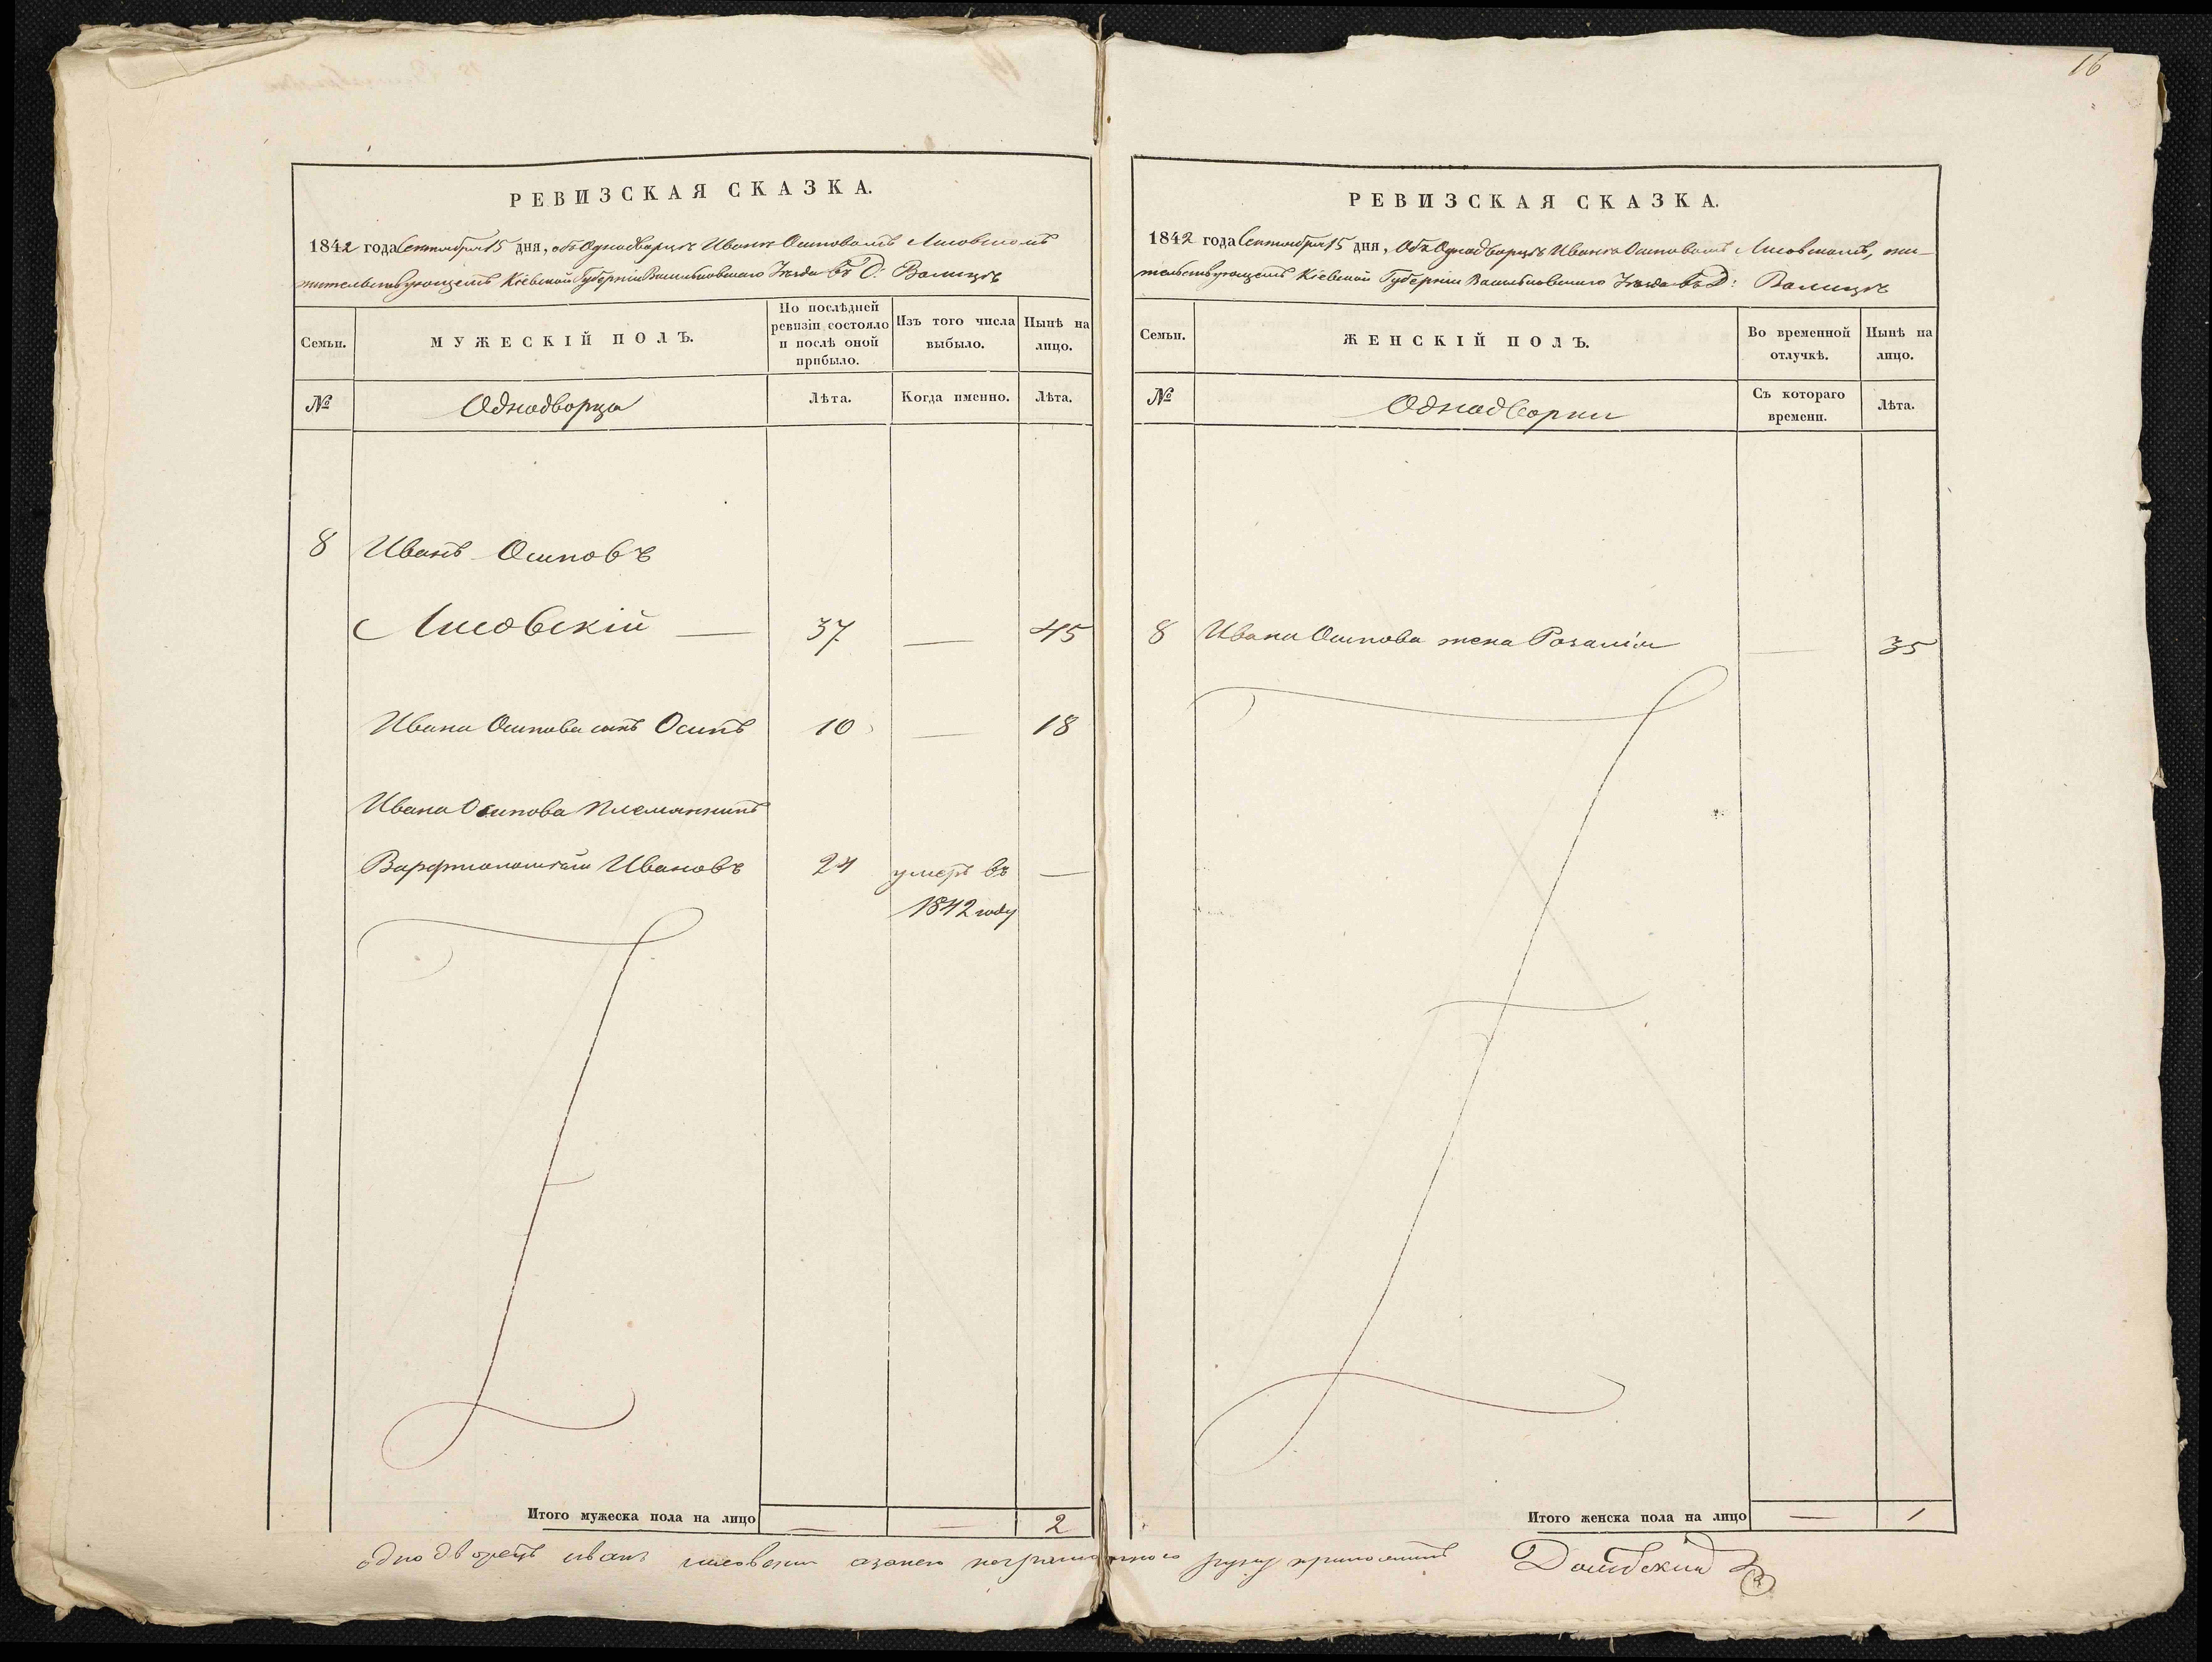 16
РЕВИЗСКАЯ СКАЗКА.
1842 года Сентября 15 дня, объ Однодворцѣ Иванѣ Осиповомъ Лисовскомъ
жительствующемъ Кіевской Губерніи Васильковскаго Уѣзда въ Д:
Семьи.
МУЖЕСКІЙ ПОЛЪ.
По послѣдней ревизіи состояло и послѣ оной прибыло.
Изъ того числа выбыло.
Нынѣ на лицо.
№
Однодворцы
Лѣта.
Когда именно.
Лѣта.
8 Иванъ Осиповъ
Лисовскій — 37 — 45
Ивана Осипова сынъ Осипъ 10 — 18
Ивана Осипова племянникъ
Варфоломей Ивановъ 24 умеръ въ —
1842 году
Итого мужеска пола на лицо — — 2
РЕВИЗСКАЯ СКАЗКА.
1842 года Сентября 15 дня, Объ Однодворцѣ Иванѣ Осиповомъ Лисовскомъ, жи-
тельствующемъ Кіевской Губерніи Васильковскаго Уѣзда въ Д:
Семьи.
ЖЕНСКІЙ ПОЛЪ.
Во временной отлучкѣ.
Нынѣ на лицо.
№
Однодворки
Съ котораго времени.
Лѣта.
8 Ивана Осипова жена Розалія — 35
Итого женска пола на лицо — 1
однодворецъ иванъ лисовскии азанего неграмотного руку приложилъ